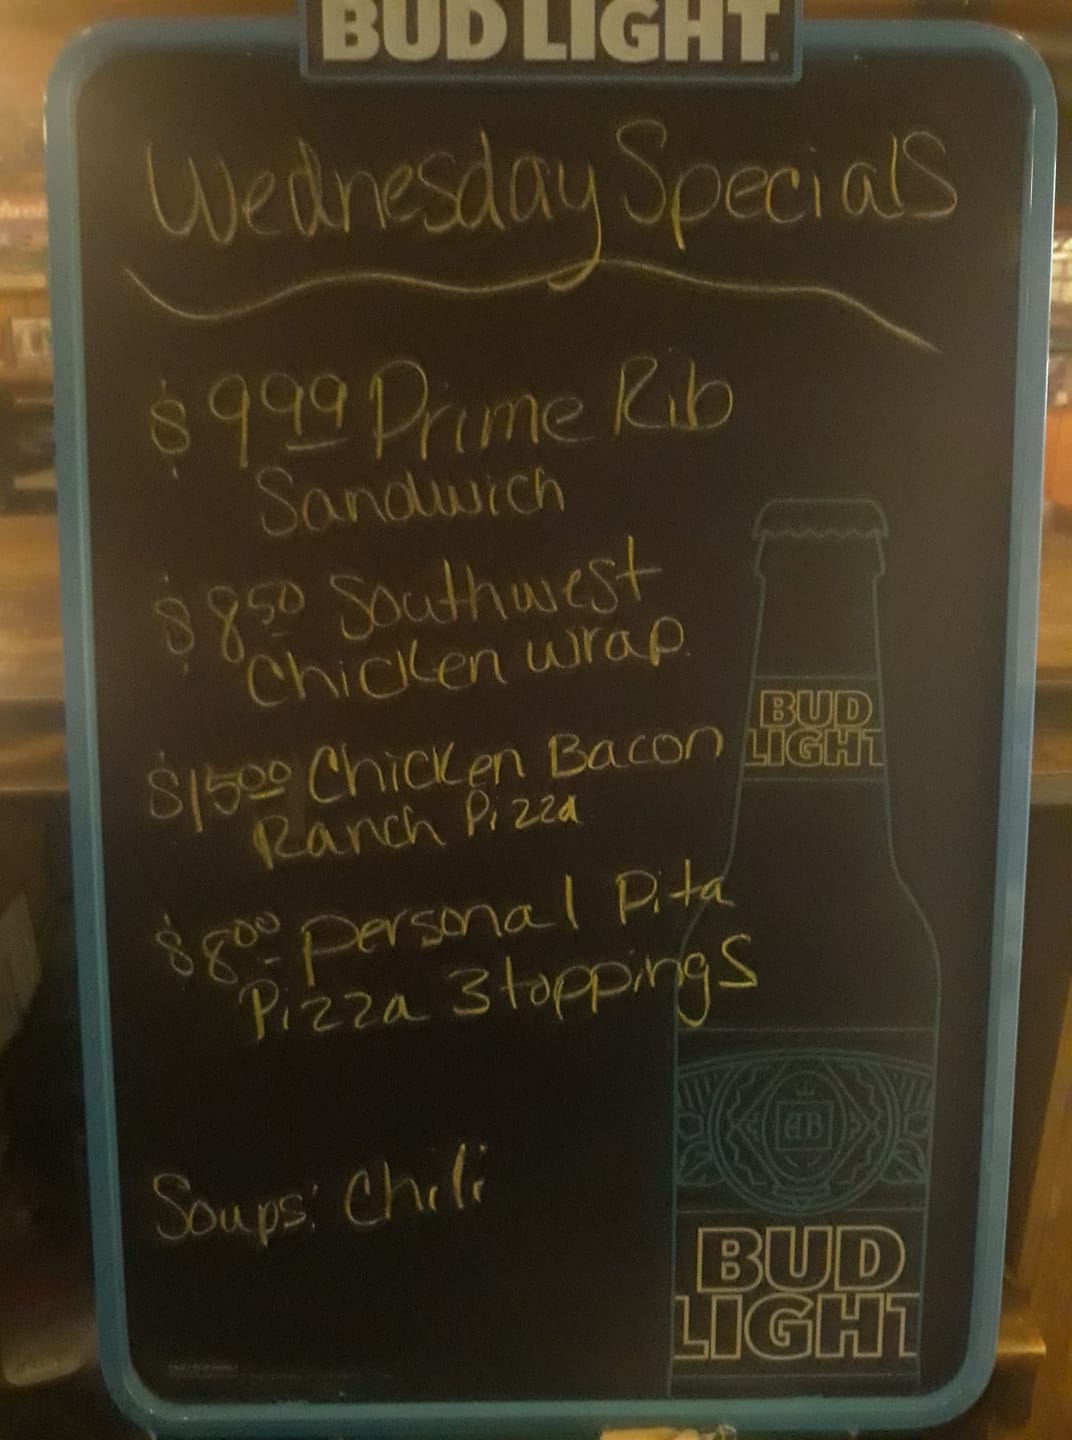 BUD LIGHT
Wednesday Specials
$9.99 Prime Rib
Sandwich
$8.50 Southwest
Chicken wrap
$15.00 Chicken Bacon
Ranch Pizza
$8.00 personal Pita
Pizza 3 toppings
Soups: Chili
BUD
LIGHT
AB
BUD
LIGHT